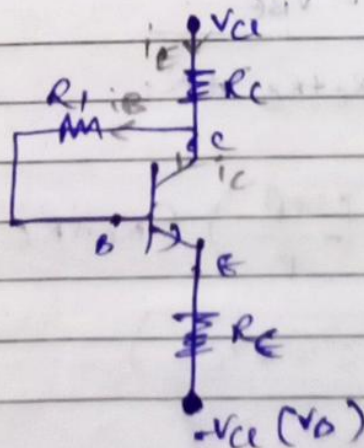 Vcc
iE
RC
R1
iB
C
iC
B
E
RE
-Vcc (VD)